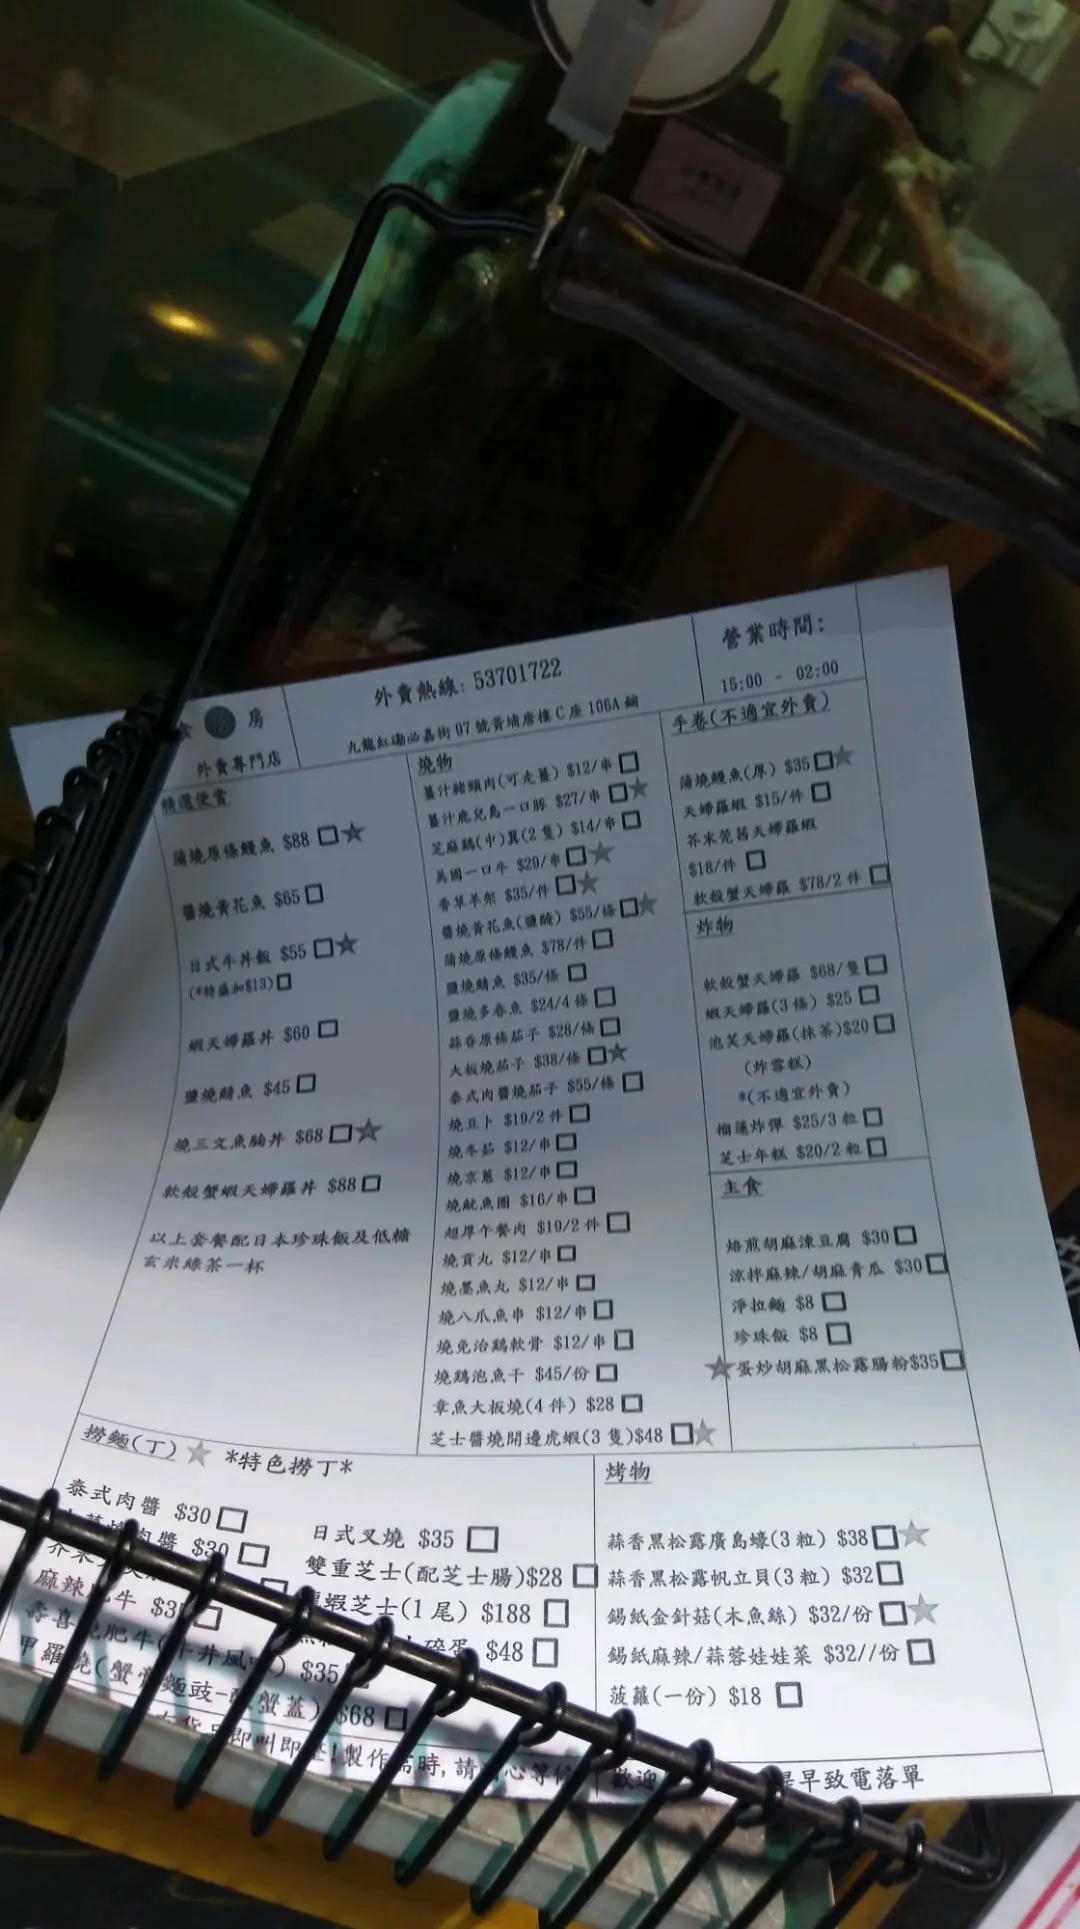 食 房
外賣專門店
外賣熱線: 53701722
九龍紅磡必嘉街 97 號黃埔唐樓 C 座 106A 鋪
營業時間:
15:00 - 02:00
精選便當
蒲燒原條鰻魚 $88
醬燒黃花魚 $65
日式牛丼飯 $55
(*特盛加$13)
蝦天婦羅丼 $60
鹽燒鯖魚 $45
燒三文魚腩丼 $68
軟殼蟹蝦天婦羅丼 $88
以上套餐配日本珍珠飯及低糖
玄米綠茶一杯
燒物
薑汁豬頸肉(可走薑) $12/串
薑汁鹿兒島一口豚 $27/串
芝麻鷄(中)翼(2 隻) $14/串
美國一口牛 $29/串
香草羊架 $35/件
醬燒黃花魚(鹽醃) $55/條
蒲燒原條鰻魚 $78/件
鹽燒鯖魚 $35/條
鹽燒多春魚 $24/4 條
蒜香原條茄子 $28/條
大板燒茄子 $38/條
泰式肉醬燒茄子 $55/條
燒豆卜 $19/2 件
燒冬菇 $12/串
燒京蔥 $12/串
燒魷魚圈 $16/串
超厚午餐肉 $19/2 件
燒貢丸 $12/串
燒墨魚丸 $12/串
燒八爪魚串 $12/串
燒免治鷄軟骨 $12/串
燒鷄泡魚干 $45/份
章魚大板燒(4 件) $28
芝士醬燒開邊虎蝦(3 隻)$48
手卷(不適宜外賣)
蒲燒鰻魚(厚) $35
天婦羅蝦 $15/件
芥末芫茜天婦羅蝦
$18/件
軟殼蟹天婦羅 $78/2 件
炸物
軟殼蟹天婦羅 $68/隻
蝦天婦羅(3 條) $25
池笑天婦羅(抹茶)$20
(炸雪糕)
*(不適宜外賣)
榴蓮炸彈 $25/3 粒
芝士年糕 $20/2 粒
主食
焙煎胡麻涷豆腐 $30
涼拌麻辣/胡麻青瓜 $30
淨拉麵 $8
珍珠飯 $8
蛋炒胡麻黑松露腸粉$35
撈麵(丁) *特色撈丁*
泰式肉醬 $30
肉醬 $30
芥末
麻辣肥牛
壽喜 肥牛(牛丼風 ) $35
甲羅燒(蟹膏麵豉- 蟹蓋) $68
日式叉燒 $35
雙重芝士(配芝士腸)$28
蝦芝士(1 尾) $188
碎蛋 $48
烤物
蒜香黑松露廣島蠔(3 粒) $38
蒜香黑松露帆立貝(3 粒) $32
錫紙金針菇(木魚絲) $32/份
錫紙麻辣/蒜蓉娃娃菜 $32//份
菠蘿(一份) $18
即叫即 !製作需時,請 心等候 歡迎 早致電落單